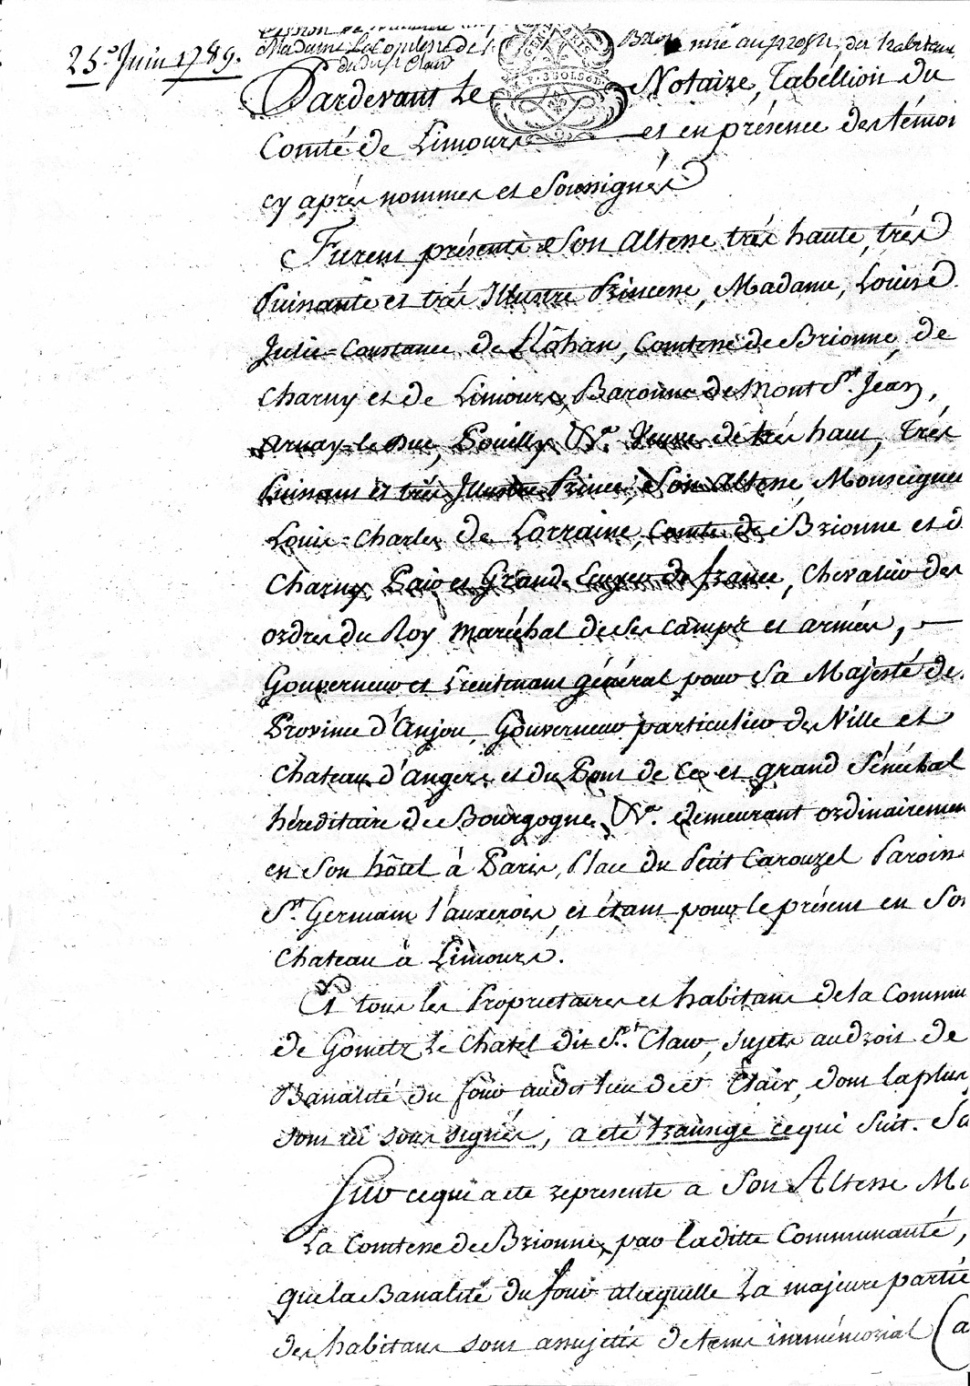 25. Juin 1789.
Madame La Comtesse de
au profit des habitans
du dit St Clair
Pardevant Le Notaire, Tabellion du
Comté de Limours et en présence des témoi
cy après nommés et Soussignés
Furent présents Son Altesse très haute, très
Puissante et très Illustre Princesse, Madame, Louise
Julie-Constance de Rohan, Comtesse de Brionne, de
Charny et de Limours, Baronne de Mont St. Jean,
Arnay-le-Duc, Pouilly &a. Veuve de très haut, très
Puissant et très Illustre Prince, Son Altesse, Monseigneu
Louis-Charles de Lorraine, Comte de Brionne et d
Charny, Pair et Grand Ecuyer de france, Chevalier des
ordres du Roy Maréchal de Ses Camps et armées, —
Gouverneur et Lieutenant général pour Sa Majesté de
Province d'Anjou, Gouverneur particulier des Ville et
Chateau d'Angers et du Pont de Cé et grand Sénéchal
héréditaire de Bourgogne, &a. demeurant ordinairemen
en Son hôtel à Paris, Place du Petit Carouzel Paroiss
St. Germain l'auxerois, et étant pour le présent en So
Chateau à Limours.
Et tous les Proprietaires et habitans de la Commu
de Gometz le Chatel dit St. Clair, Sujets au droit de
Banalité du four audit lieu de St Clair, dont la plus
sont ici sous signés, a été transigé ce qui Suit. Sa
Sur ce qui a été représenté à Son Altesse Ma
La Comtesse de Brionne, par la ditte Communauté,
que la Banalité du four à laquelle La majeure partie
des habitans sont assujetis de tems immémorial (a